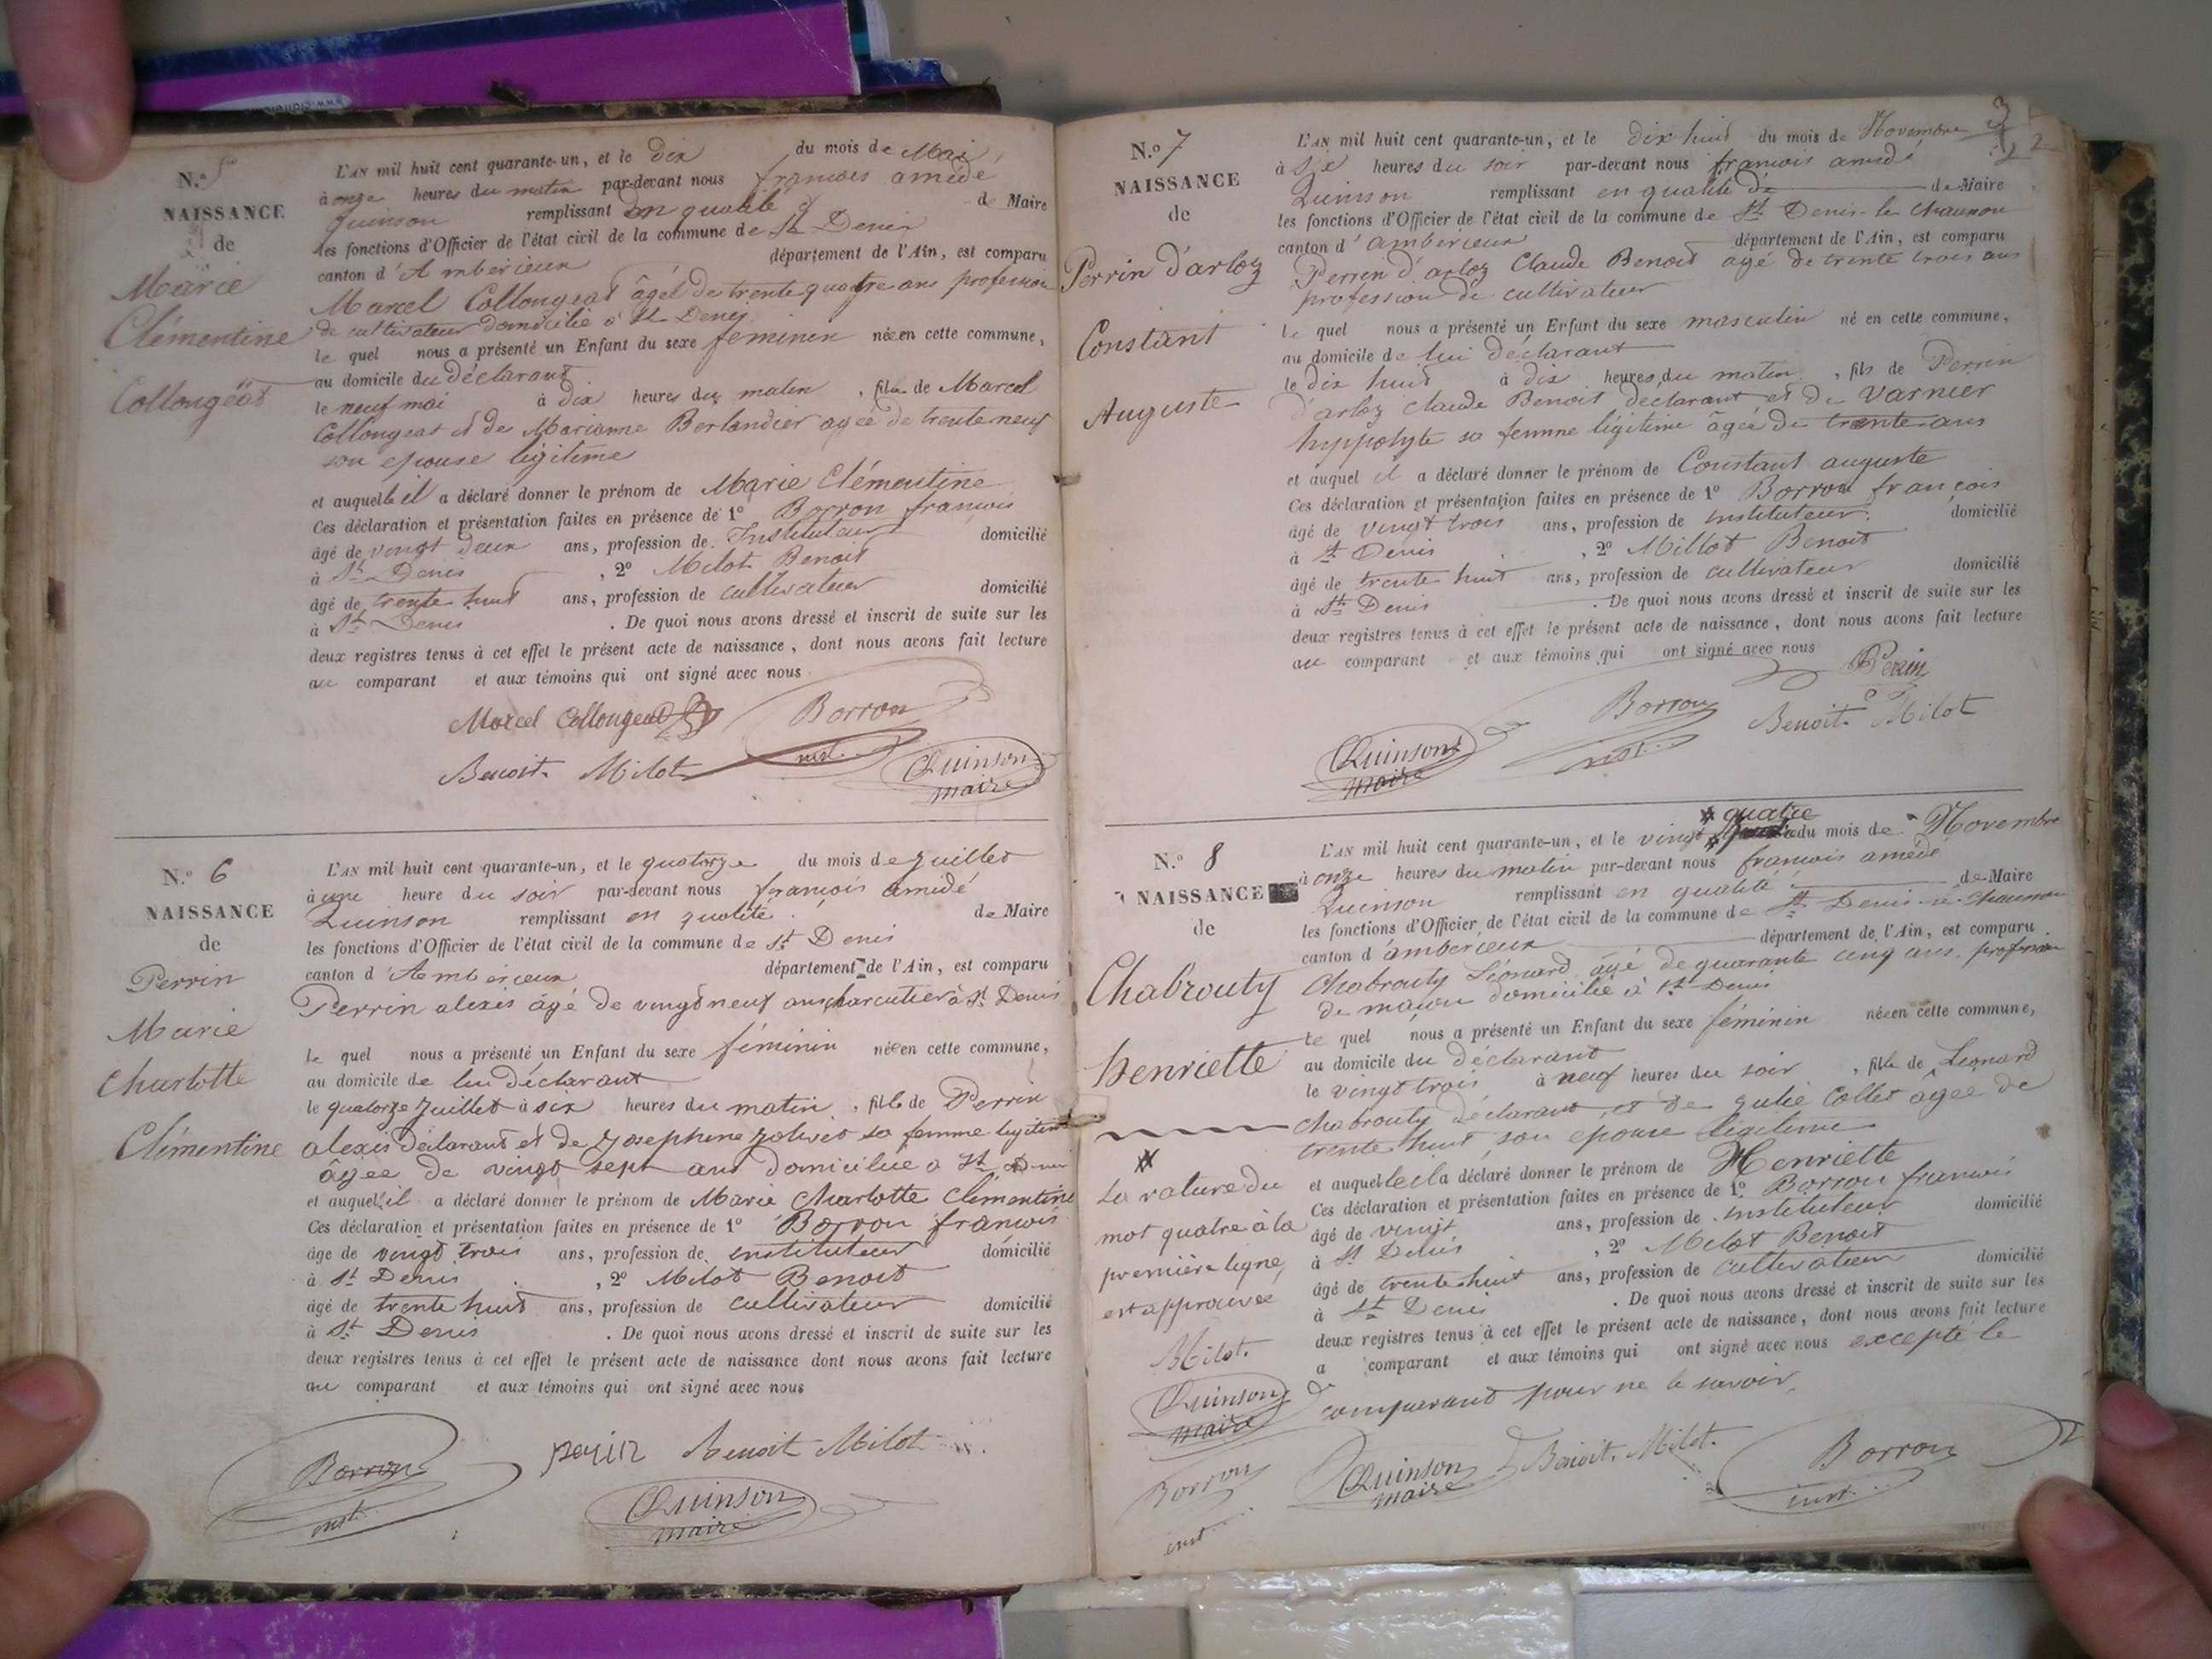 N.º 5
NAISSANCE
de
Marie
Clémentine
Collongeat
L'AN mil huit cent quarante-un, et le dix du mois de Mai
à onze heures du matin par-devant nous françois amédé
Quinson remplissant en qualité de Maire
les fonctions d'Officier de l'état civil de la commune de St Denis
canton d'Ambérieux département de l'Ain, est comparu
Marcel Collongeat âgé de trente quatre ans profession
de cultivateur domicilié à St Denis
le quel nous a présenté un Enfant du sexe féminin née en cette commune,
au domicile du déclarant
le neuf mai à dix heures du matin, fille de Marcel
Collongeat et de Marianne Berlandier agée de trente neuf
son epouse légitime
et auquel il a déclaré donner le prénom de Marie Clémentine
Ces déclaration et présentation faites en présence de 1º Borron françois
âgé de vingt deux ans, profession de Instituteur domicilié
à St Denis, 2º Milot Benoit
âgé de trente huit ans, profession de cultivateur domicilié
à St Denis. De quoi nous avons dressé et inscrit de suite sur les
deux registres tenus à cet effet le présent acte de naissance, dont nous avons fait lecture
au comparant et aux témoins qui ont signé avec nous
Marcel Collongeat Borron
inst.
Benoit Milot Quinson
maire
N.º 6
NAISSANCE
de
Perrin
Marie
Charlotte
Clémentine
L'AN mil huit cent quarante-un, et le quatorze du mois de juillet
à une heure du soir par-devant nous françois amédé
Quinson remplissant en qualité de Maire
les fonctions d'Officier de l'état civil de la commune de St Denis
canton d'Ambérieux département de l'Ain, est comparu
Perrin alexis âgé de vingt neuf ans charcutier à St Denis
le quel nous a présenté un Enfant du sexe féminin née en cette commune,
au domicile de lui déclarant
le quatorze juillet à six heures du matin, fille de Perrin
alexis déclarant et de josephine jolivet sa femme legitime
âgée de vingt sept ans domiciliée a St Denis
et auquel il a déclaré donner le prénom de Marie Charlotte Clémentine
Ces déclaration et présentation faites en présence de 1º Borron françois
âge de vingt trois ans, profession de instituteur domicilié
à St Denis, 2º Milot Benoit
âgé de trente huit ans, profession de cultivateur domicilié
à St Denis. De quoi nous avons dressé et inscrit de suite sur les
deux registres tenus à cet effet le présent acte de naissance dont nous avons fait lecture
au comparant et aux témoins qui ont signé avec nous
Borron perin Benoit Milot
inst. Quinson
maire
3
N.º 7
NAISSANCE
de
Perrin d'arloz
Constant
Auguste
L'AN mil huit cent quarante-un, et le dix huit du mois de Novembre
à six heures du soir par-devant nous françois amédé
Quinson remplissant en qualité de de Maire
les fonctions d'Officier de l'état civil de la commune de St Denis le Chausson
canton d'ambérieux département de l'Ain, est comparu
Perrin d'arloz Claude Benoit âgé de trente trois ans
profession de cultivateur
le quel nous a présenté un Enfant du sexe masculin né en cette commune,
au domicile de lui déclarant
le dix huit à dix heures du matin, fils de Perrin
d'arloz claude Benoit déclarant et de Varnier
hyppolyte sa femme légitime âgée de trente ans
et auquel il a déclaré donner le prénom de Constant auguste
Ces déclaration et présentation faites en présence de 1º Borron françois
âgé de vingt trois ans, profession de instituteur domicilié
à St Denis, 2º Millot Benoit
âgé de trente huit ans, profession de cultivateur domicilié
à St Denis. De quoi nous avons dressé et inscrit de suite sur les
deux registres tenus à cet effet le présent acte de naissance, dont nous avons fait lecture
au comparant et aux témoins qui ont signé avec nous
Perrin
Borron Benoit Milot
inst.
Quinson
maire
N.º 8
NAISSANCE
de
Chabrouty
henriette
La rature du
mot quatre à la
première ligne,
est approuvée
Milot.
Quinson
maire
Borron
inst
quatre
L'AN mil huit cent quarante-un, et le vingt du mois de Novembre
à onze heures du matin par-devant nous françois amédé
Quinson remplissant en qualité de Maire
les fonctions d'Officier de l'état civil de la commune de St Denis le Chausson
canton d'ambérieux département de l'Ain, est comparu
Chabrouty Léonard âgé de quarante cinq ans profession
de macon domicilié à St Denis
le quel nous a présenté un Enfant du sexe féminin née en cette commune,
au domicile du déclarant
le vingt trois à neuf heures du soir, fille de Léonard
Chabrouty déclarant et de julie Collet âgée de
trente huit son epouse légitime
et auquel a déclaré donner le prénom de Henriette
Ces déclaration et présentation faites en présence de 1º Borron françois
âgé de vingt ans, profession de instituteur domicilié
à St Denis, 2º Milot Benoit
âgé de trente huit ans, profession de cultivateur domicilié
à St Denis. De quoi nous avons dressé et inscrit de suite sur les
deux registres tenus à cet effet le présent acte de naissance, dont nous avons fait lecture
a comparant et aux témoins qui ont signé avec nous excepté le
comparant pour ne le savoir
Quinson Benoit Milot. Borron
maire inst.